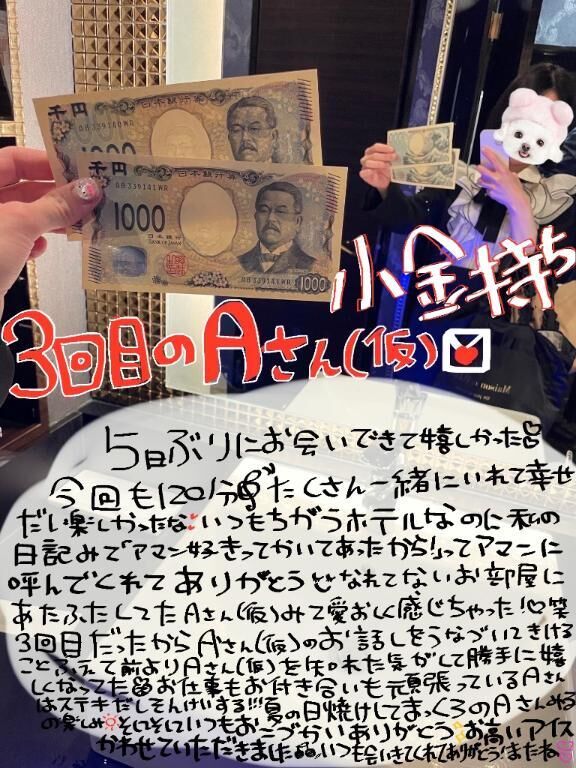 千円
日本銀行券
DB339140WR
1000
千円
日本銀行券
DB339141WR
1000
日本銀行
BANK OF JAPAN
DB339141WR
1000
小金持ち
3回目のAさん(仮)
5日ぶりにお会いできて嬉しかった
今回も120分たくさん一緒にいれて幸せ
だし楽しかったな いつもちがうホテルなのに私の
日記みて「アマン好きってかいてあったから!」ってアマンに
呼んでくれてありがとう なれてないお部屋に
あたふたしてたAさん(仮)みて愛おしく感じちゃった 笑
3回目だったからAさん(仮)のお話しをうなづいてきける
ことふえて前よりAさん(仮)を知れた気がして勝手に嬉
しくなってた お仕事もお付き合いも頑張っているAさん
はステキだしそんけいする!!!夏の日焼けしてまっくろのAさんみるの
楽しみ そしていつもおこづかいありがとう お高いアイス
かわせていただきました いつも会いきてくれてありがとう!またね